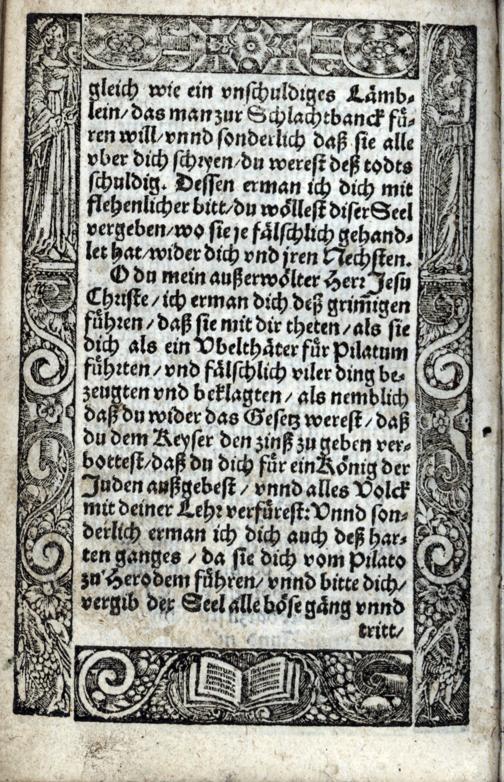 gleich wie ein vnschuldiges Lämb-
lein/ das man zur Schlachtbanck fü-
ren will/ vnnd sonderlich daß sie alle
vber dich schryen/ du werest deß todts
schuldig. Dessen erman ich dich mit
flehenlicher bitt/ du wöllest diser Seel
vergeben/ wo sie je fälschlich gehand-
let hat/ wider dich vnd jren Nechsten.
O du mein außerwölter Herr Jesu
Christe/ ich erman dich deß grim̃igen
führen/ daß sie mit dir theten/ als sie
dich als ein Vbelthäter für Pilatum
führten/ vnd fälschlich viler ding be-
zeugten vnd beklagten/ als nemblich
daß du wider das Gesetz werest/ daß
du dem Keyser den zinß zu geben ver-
bottest/ daß du dich für ein König der
Juden außgebest/ vnnd alles Volck
mit deiner Lehr verfürest: Vnnd son-
derlich erman ich dich auch deß har-
ten ganges/ da sie dich vom Pilato
zu Herodem führen/ vnnd bitte dich/
vergib der Seel alle böse gäng vnnd
tritt/